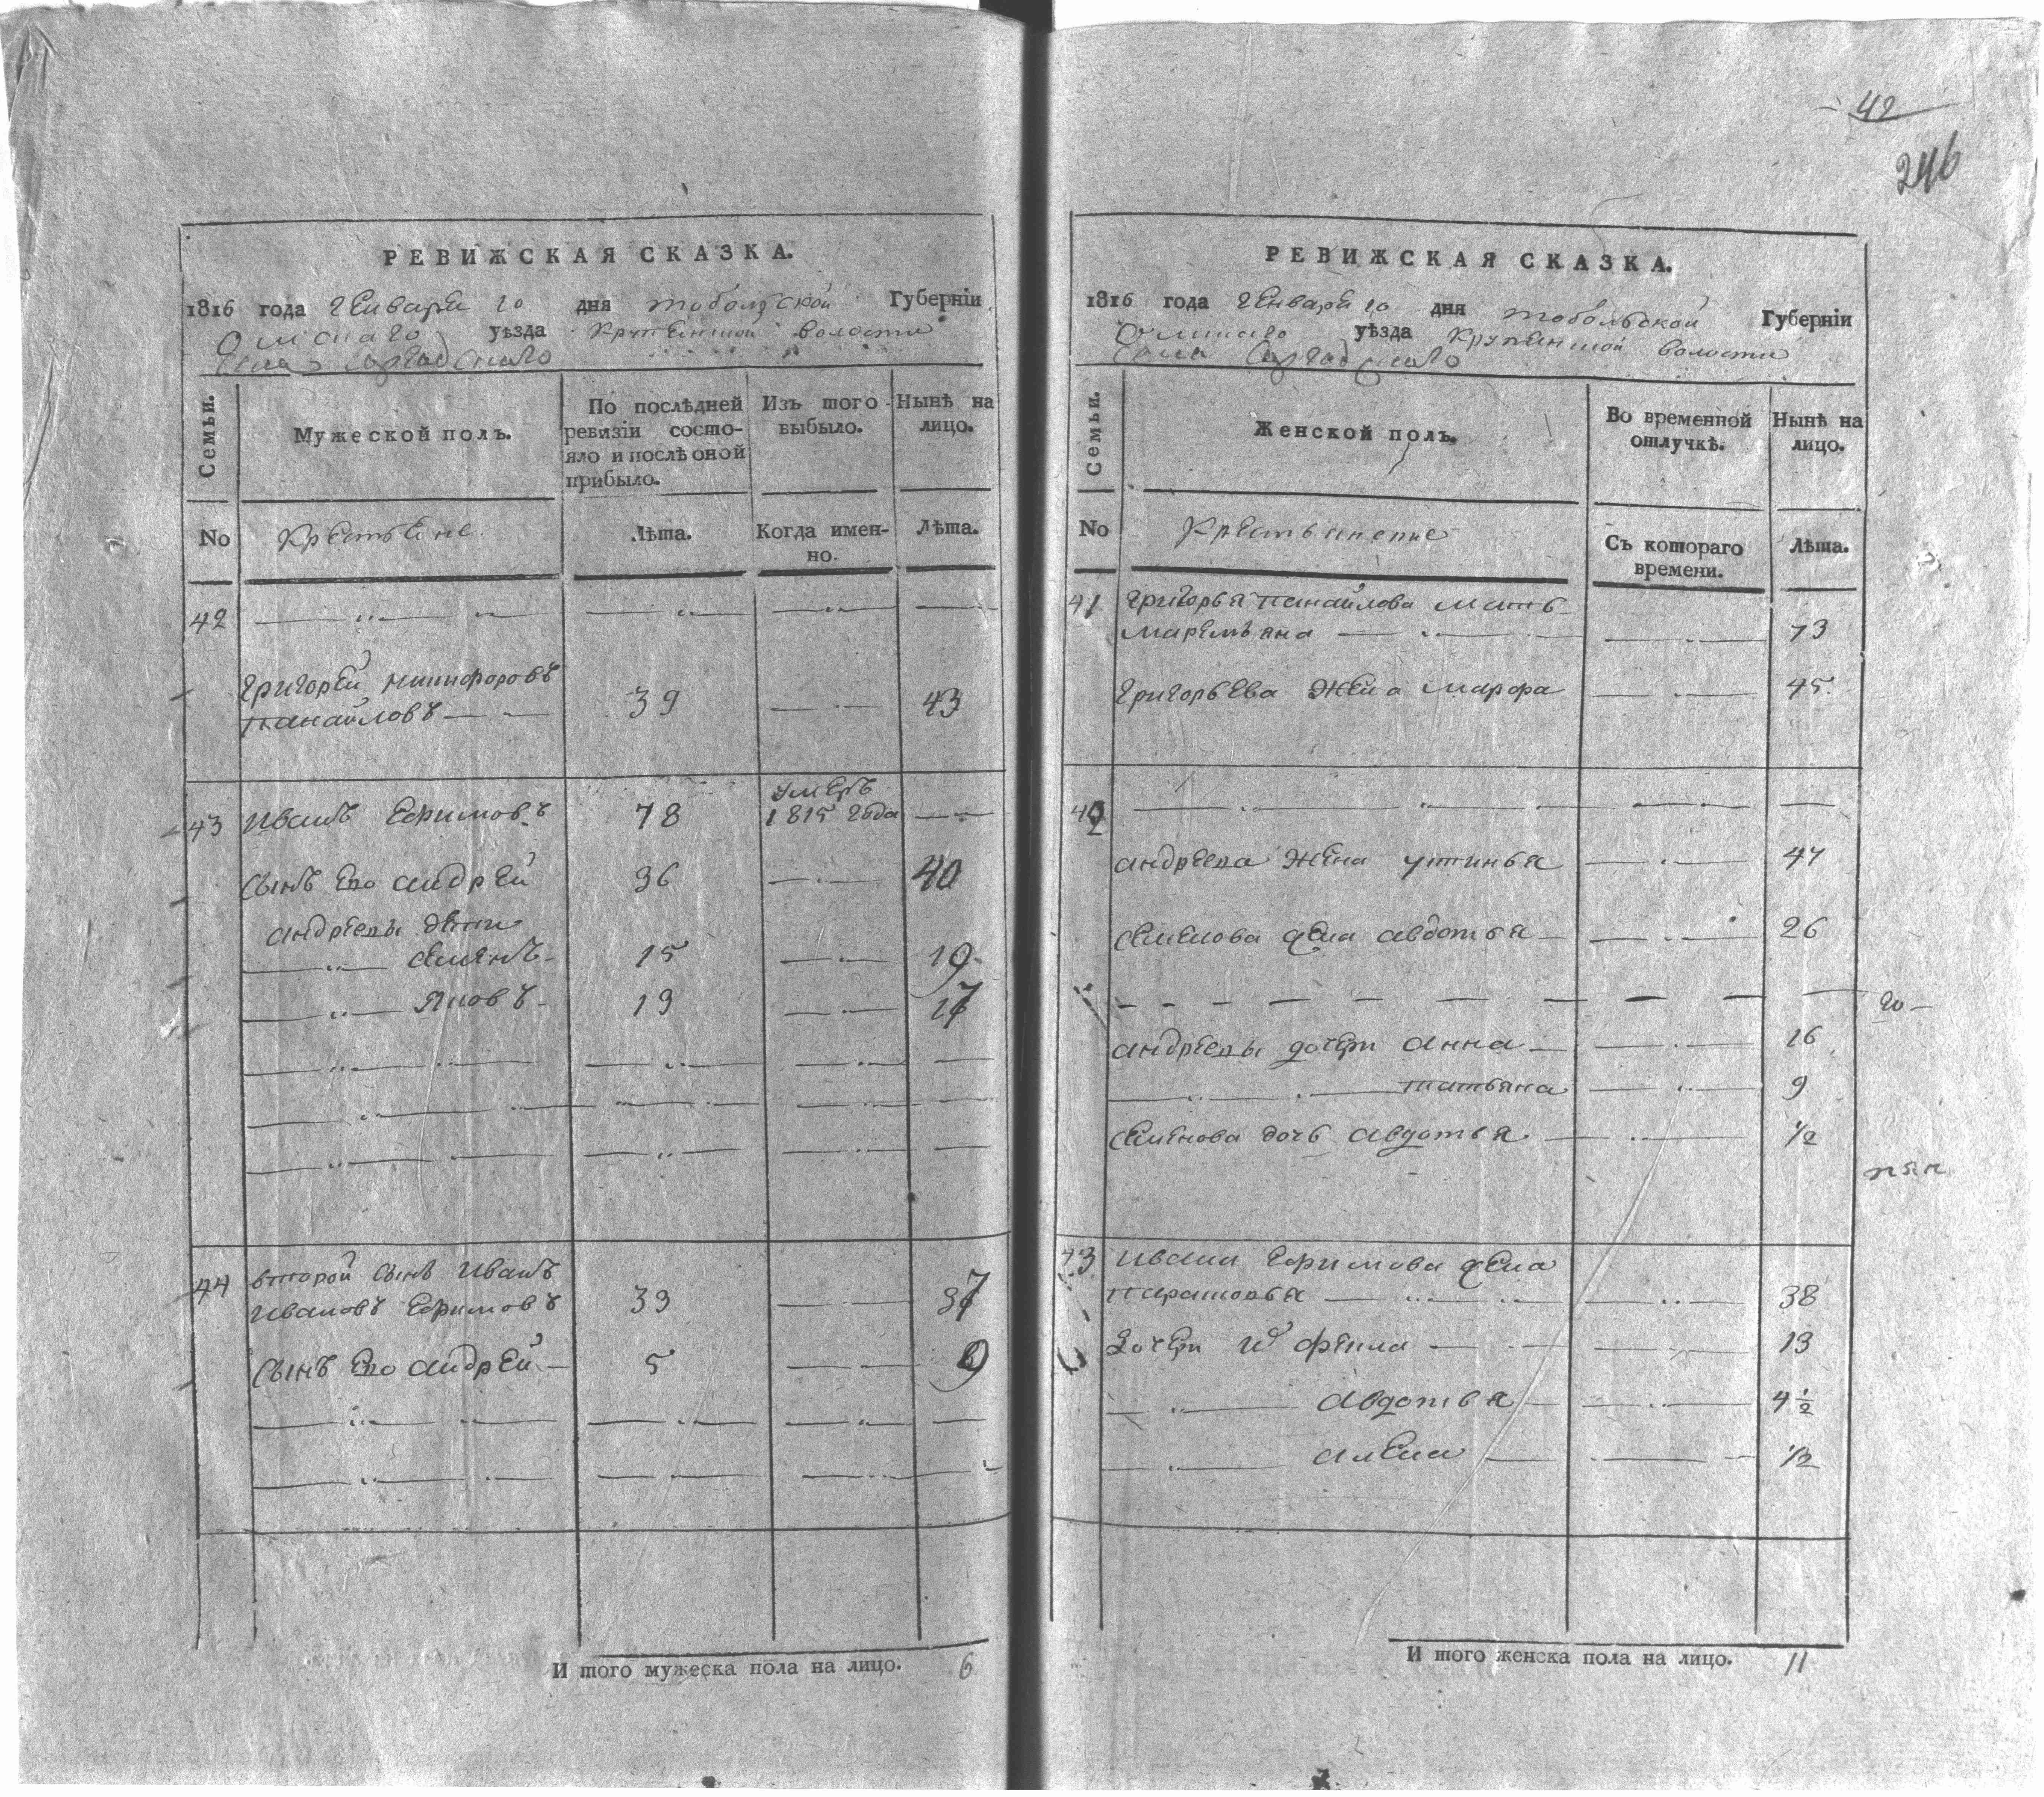 42
246
РЕВИЖСКАЯ СКАЗКА.
1816 года генваря 20 дня тобольской Губерніи
Омскаго уѣзда Крутинской волости
Села
Семьи.
Мужеской полъ.
По послѣдней ревизіи состо-
яло и послѣ оной
прибыло.
Изъ того выбыло.
Нынѣ на лицо.
No
Крестьяне
Лѣта.
Когда имен-
но.
Лѣта.
42
Григорей Никифоровъ
панайловъ 39 43
43 Иванъ Ефимовъ 78 умеръ 1815 года
сынъ Ево андрей 36 40
андреевы дети
семенъ 15 19
яковъ 13 17
44 второй сынъ Иванъ
Ивановъ Ефимовъ 33 37
сынъ Ево андрей 5 9
И того мужеска пола на лицо. 6
РЕВИЖСКАЯ СКАЗКА.
1816 года генваря 20 дня тобольской Губерніи
Омскаго уѣзда Крутинской волости
Села
Семьи.
Женской полъ.
Во временной
отлучкѣ.
Нынѣ на
лицо.
No
Крестьянские
Съ котораго
времени.
Лѣта.
41 Григорья панайлова мать
маремьяна 73
григорьева жена марфа 45
42
андреева жена устинья 47
семенова жена авдотья 26
андреевы дочери анна 16
татьяна 9
семенова дочь авдотья 1/2
43 Ивана Ефимова жена
парасковья 38
дочери фекла 13
авдотья 4 1/2
алена 1/2
И того женска пола на лицо. 11